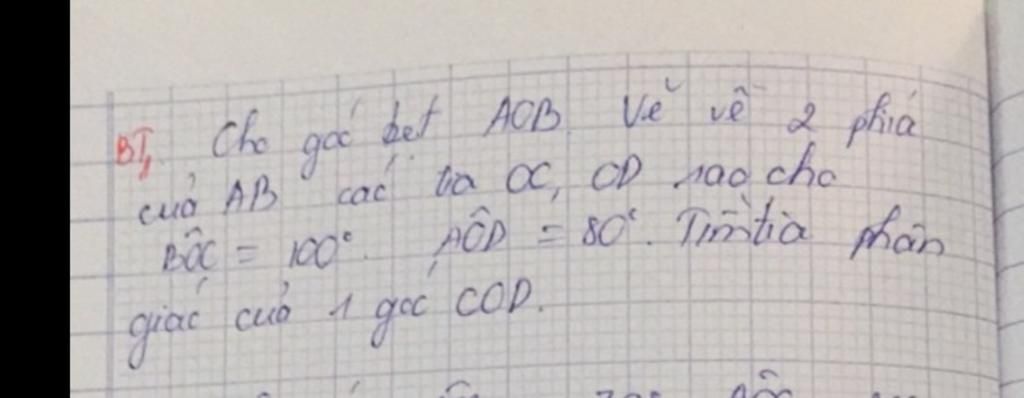 BT1. Cho góc bẹt AOB. Vẽ về 2 phía
của AB các tia OC, OD sao cho
BÔC = 100°. AÔD = 80°. Tìm tia phân
giác của 1 góc COD.